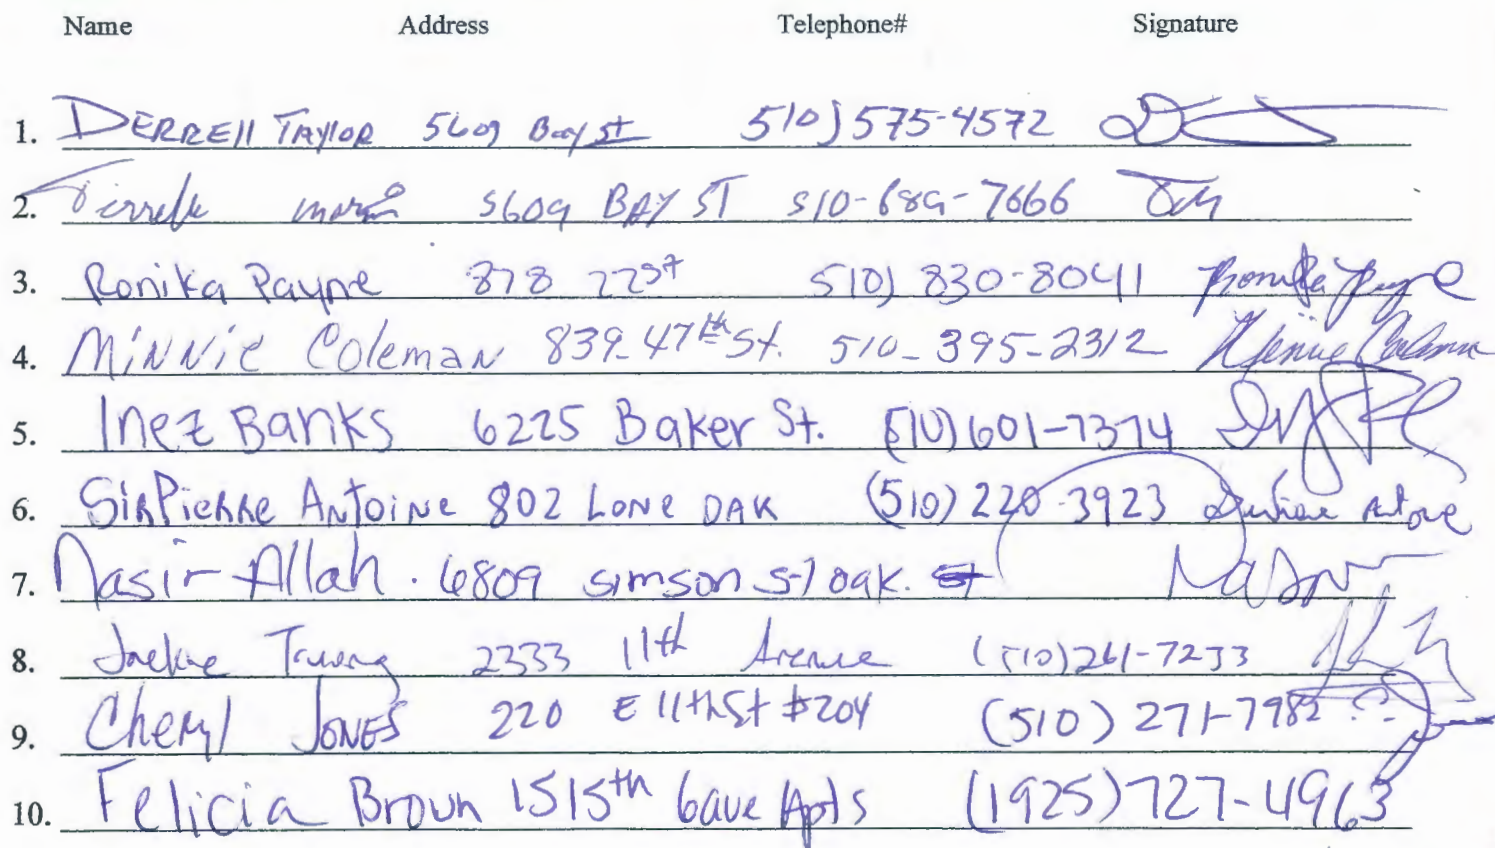 Name Address Telephone# Signature
1. DERRELL TAYLOR 5609 Bay St 510) 575-4572
2. 5609 BAY ST 510-689-7666
3. Ronika Payne 878 22st 510) 830-8041 Ronika Payne
4. MiNNie Coleman 839-47th St. 510-395-2312 Minnie Coleman
5. Inez Banks 6225 Baker St. (510) 601-7374
6. SirPierre Antoine 802 Lone OAK (510) 220-3923
7. Nasir Allah. 6809 simson st oak.
8. Jackie Truong 2333 11th Avenue (510) 261-7233
9. Cheryl JONES 220 E 11th St #204 (510) 271-7982
10. Felicia Brown 1515th 6ave Apts (1925) 727-4963